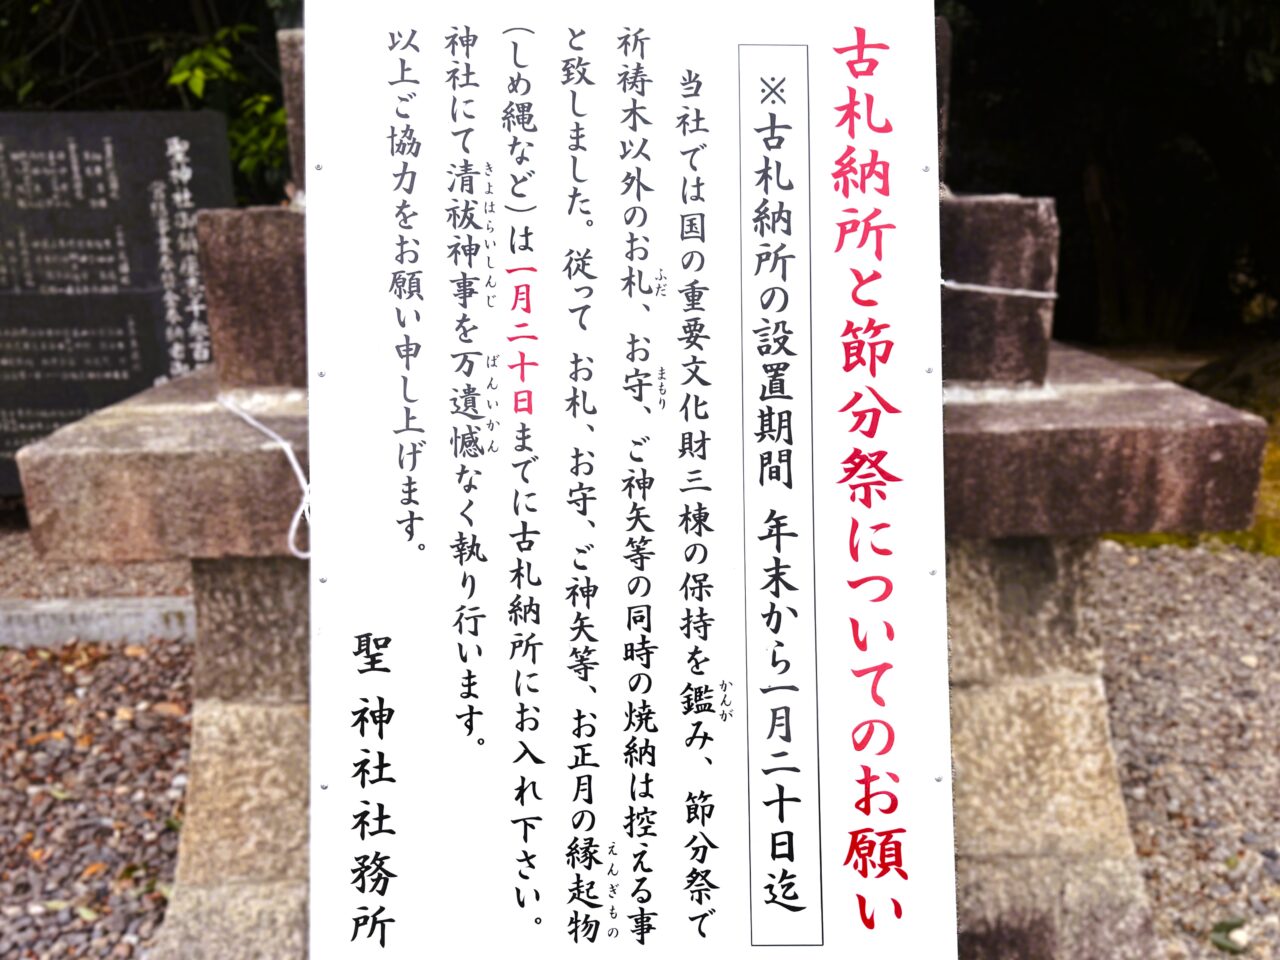 古札納所と節分祭についてのお願い
※古札納所の設置期間 年末から一月二十日迄
当社では国の重要文化財三棟の保持を鑑み、節分祭で
かんが
祈祷木以外のお札、お守、ご神矢等の同時の焼納は控える事
ふだ
まもり
と致しました。従って お札、お守、ご神矢等、お正月の縁起物
えんぎもの
(しめ縄など)は一月二十日までに古札納所にお入れ下さい。
神社にて清祓神事を万遺憾なく執り行います。
きよはらいしんじ
ばんいかん
以上ご協力をお願い申し上げます。
聖 神社社務所
聖神社